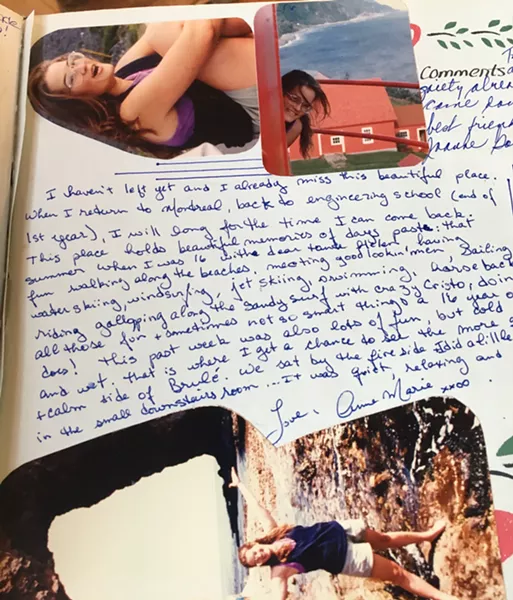 Comments
I haven't left yet and I already miss this beautiful place.
When I return to Montreal, back to engineering school (end of
1st year), I will long for the time I can come back.
This place holds beautiful memories of days past: that
summer when I was 16 with dear tante Helen, having
fun walking along the beaches, meeting good lookin' men, sailing
waterskiing, windsurfing, jet skiing, swimming, horseback
riding galloping along the sandy surf with crazy Cristo, doin
all those fun + sometimes not so smart things a 16 year o
does! This past week was also lots of fun, but cold
and wet, that is where I got a chance to see the more s
+ calm side of Brulé. We sat by the fire side I did a little
in the small downstairs room... It was quiet, relaxing and
Love, Anne Marie xxoo
best friend